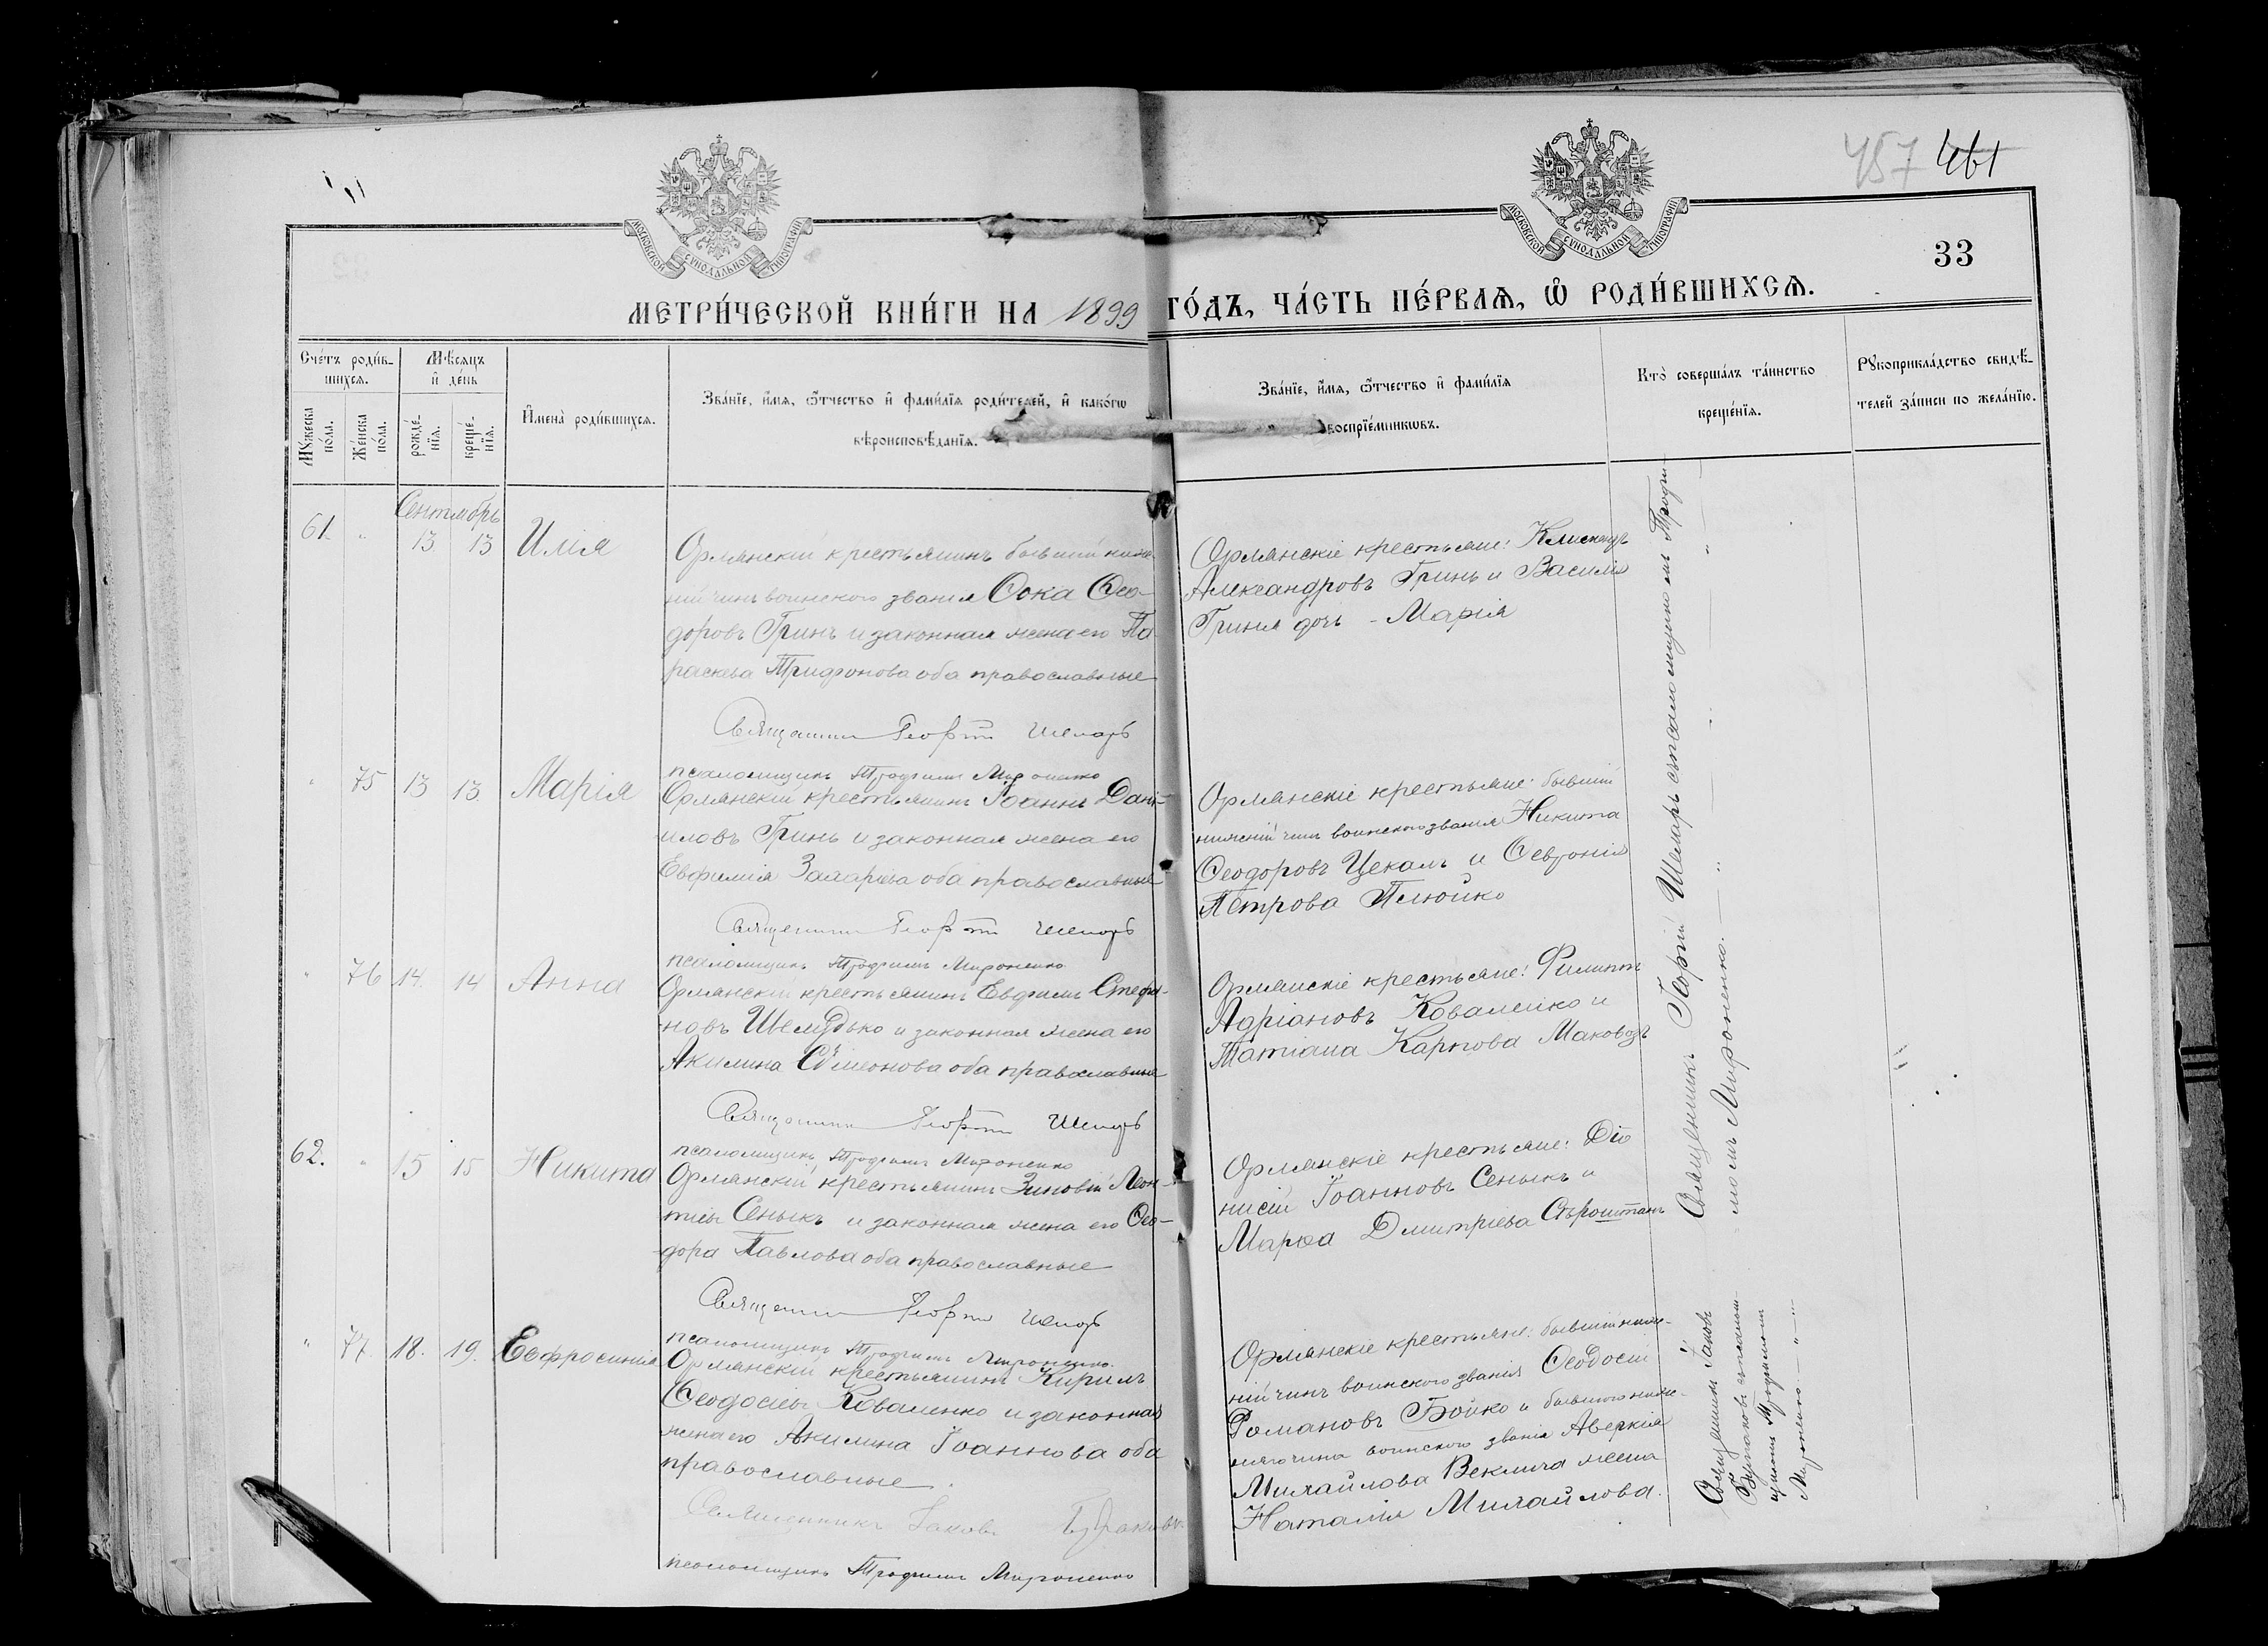 457 461
МОСКОВСКОЙ СѴНОДАЛЬНОЙ ТИПОГРАФІИ
МОСКОВСКОЙ СѴНОДАЛЬНОЙ ТИПОГРАФІИ
33
МЕТРИ́ЧЕСКОЙ КНИ́ГИ НА 1899 ГО́ДЪ, ЧА́СТЬ ПЕ́РВАѦ, Ѡ҆ РОДИ́ВШИХСѦ.
Сче́тъ роди́в-
шихсѧ.
Мꙋ́жеска по́ла.
Же́нска по́ла.
Мѣ́сѧцъ
и҆ де́нь
рожде́-
нїѧ.
креще́-
нїѧ.
И҆мена̀ роди́вшихсѧ.
Зва́нїе, и҆́мѧ, ѻ҆́тчество и҆ фами́лїѧ роди́телей, и҆ како́гѡ
вѣроисповѣ́данїѧ.
Зва́нїе, и҆́мѧ, ѻ҆́тчество и҆ фами́лїѧ
воспрїе́мникѡвъ.
Кто̀ соверша́лъ та́инство
креще́нїѧ.
Рꙋкоприкла́дство свидѣ́-
телей за́писи по жела́нїю.
Сентябрь
61. " 13 13 Илія
Ормянскій крестьянинъ бывшій ниж-
ній чинъ воинскаго званія Ѳока Ѳео-
доровъ Гринь и законная жена его Па-
раскева Трифонова оба православные
Священникъ Георгій Шемарь
псаломщикъ Трофимъ Мироненко
Ормянскіе крестьяне:
Александровъ Гринь и Василія
Гриня дочь - Марія
" 75 13 13. Марія
Ормянскій крестьянинъ Іоаннъ Дані-
иловъ Гринь и законная жена его
Евфимія Захаріева оба православные
Священникъ Георгій Шемарь
псаломщикъ Трофимъ Мироненко
Ормянскіе крестьяне: бывшій
нижній чинъ воинскаго званія Никита
Ѳеодоровъ Цекалъ и Ѳевронія
Петрова Плюйко
" 76 14. 14 Анна
Ормянскій крестьянинъ Евфимъ Стефа-
новъ Шелудько и законная жена его
Акилина Сѵмеонова оба православные
Священникъ Георгій Шемарь
псаломщикъ Трофимъ Мироненко
Ормянскіе крестьяне: Филиппъ
Адріановъ Коваленко и
Татіана Карпова Маковозъ
62. " 15 15 Никита
Ормянскій крестьянинъ Зиновій Леон-
тіевъ Сеныкъ и законная жена его Ѳео-
дора Павлова оба православные
Священникъ Георгій Шемарь
псаломщикъ Трофимъ Мироненко
Ормянскіе крестьяне: Діо
нисій Іоанновъ Сеныкъ и
Марѳа Дмитріева
" 77. 18. 19. Евфросинія
Ормянскій крестьянинъ Кирилъ
Ѳеодосіевъ Коваленко и законная
жена его Акилина Іоаннова оба
православные.
Священникъ Іаковъ
псаломщикъ Трофимъ Мироненко
Ормянскіе крестьяне: бывшій ниж-
ній чинъ воинскаго званія Ѳеодосій
Романовъ Бойко и бывшаго ниж-
няго чина воинскаго званія Аверкія
Михайлова Веклича жена
Наталія Михайлова.
Священникъ Георгій Шемарь съ псаломщикомъ Трофи-
момъ Мироненко.
Священникъ Іаковъ
съ псалом-
щикомъ Трофимомъ
Мироненко